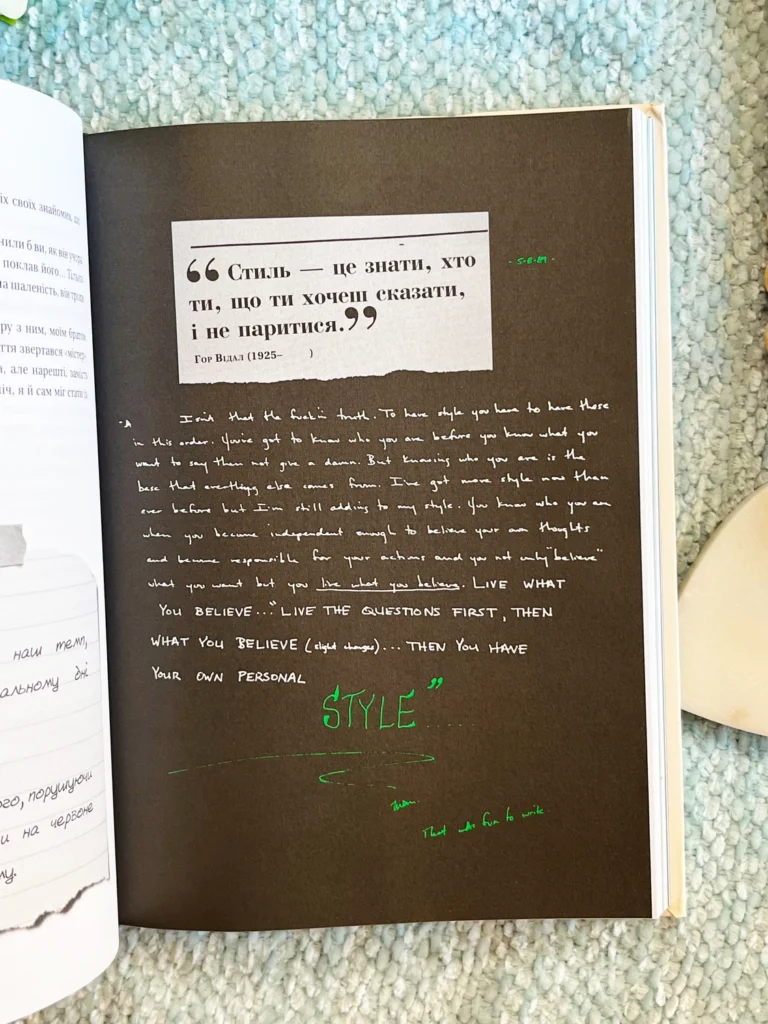 іх своїх знайомих, що
поклав його...
а шаленість, він
ру з ним, моїм братом
ття звертався
а, але нарешті, замість
іч, я й сам міг стати
наш темп,
альному дні
ого, порушуючи
и на червоне
“ Стиль — це знати, хто
ти, що ти хочеш сказати,
і не паритися.”
Гор Відал (1925– )
Isn't that the fuckin truth. To have style you have to have these
in this order. You've got to know who you are before you know what you
want to say then not give a damn. But knowing who you are is the
base that everything else comes from. I've got more style now than
ever before but I'm still adding to my style. You know who you are
when you become independent enough to believe your own thoughts
and become responsible for your actions and you not only "believe"
what you want but you live what you believe. LIVE WHAT
YOU BELIEVE..." LIVE THE QUESTIONS FIRST, THEN
WHAT YOU BELIEVE (slight changes)... THEN YOU HAVE
YOUR OWN PERSONAL
STYLE”
That was fun to write.